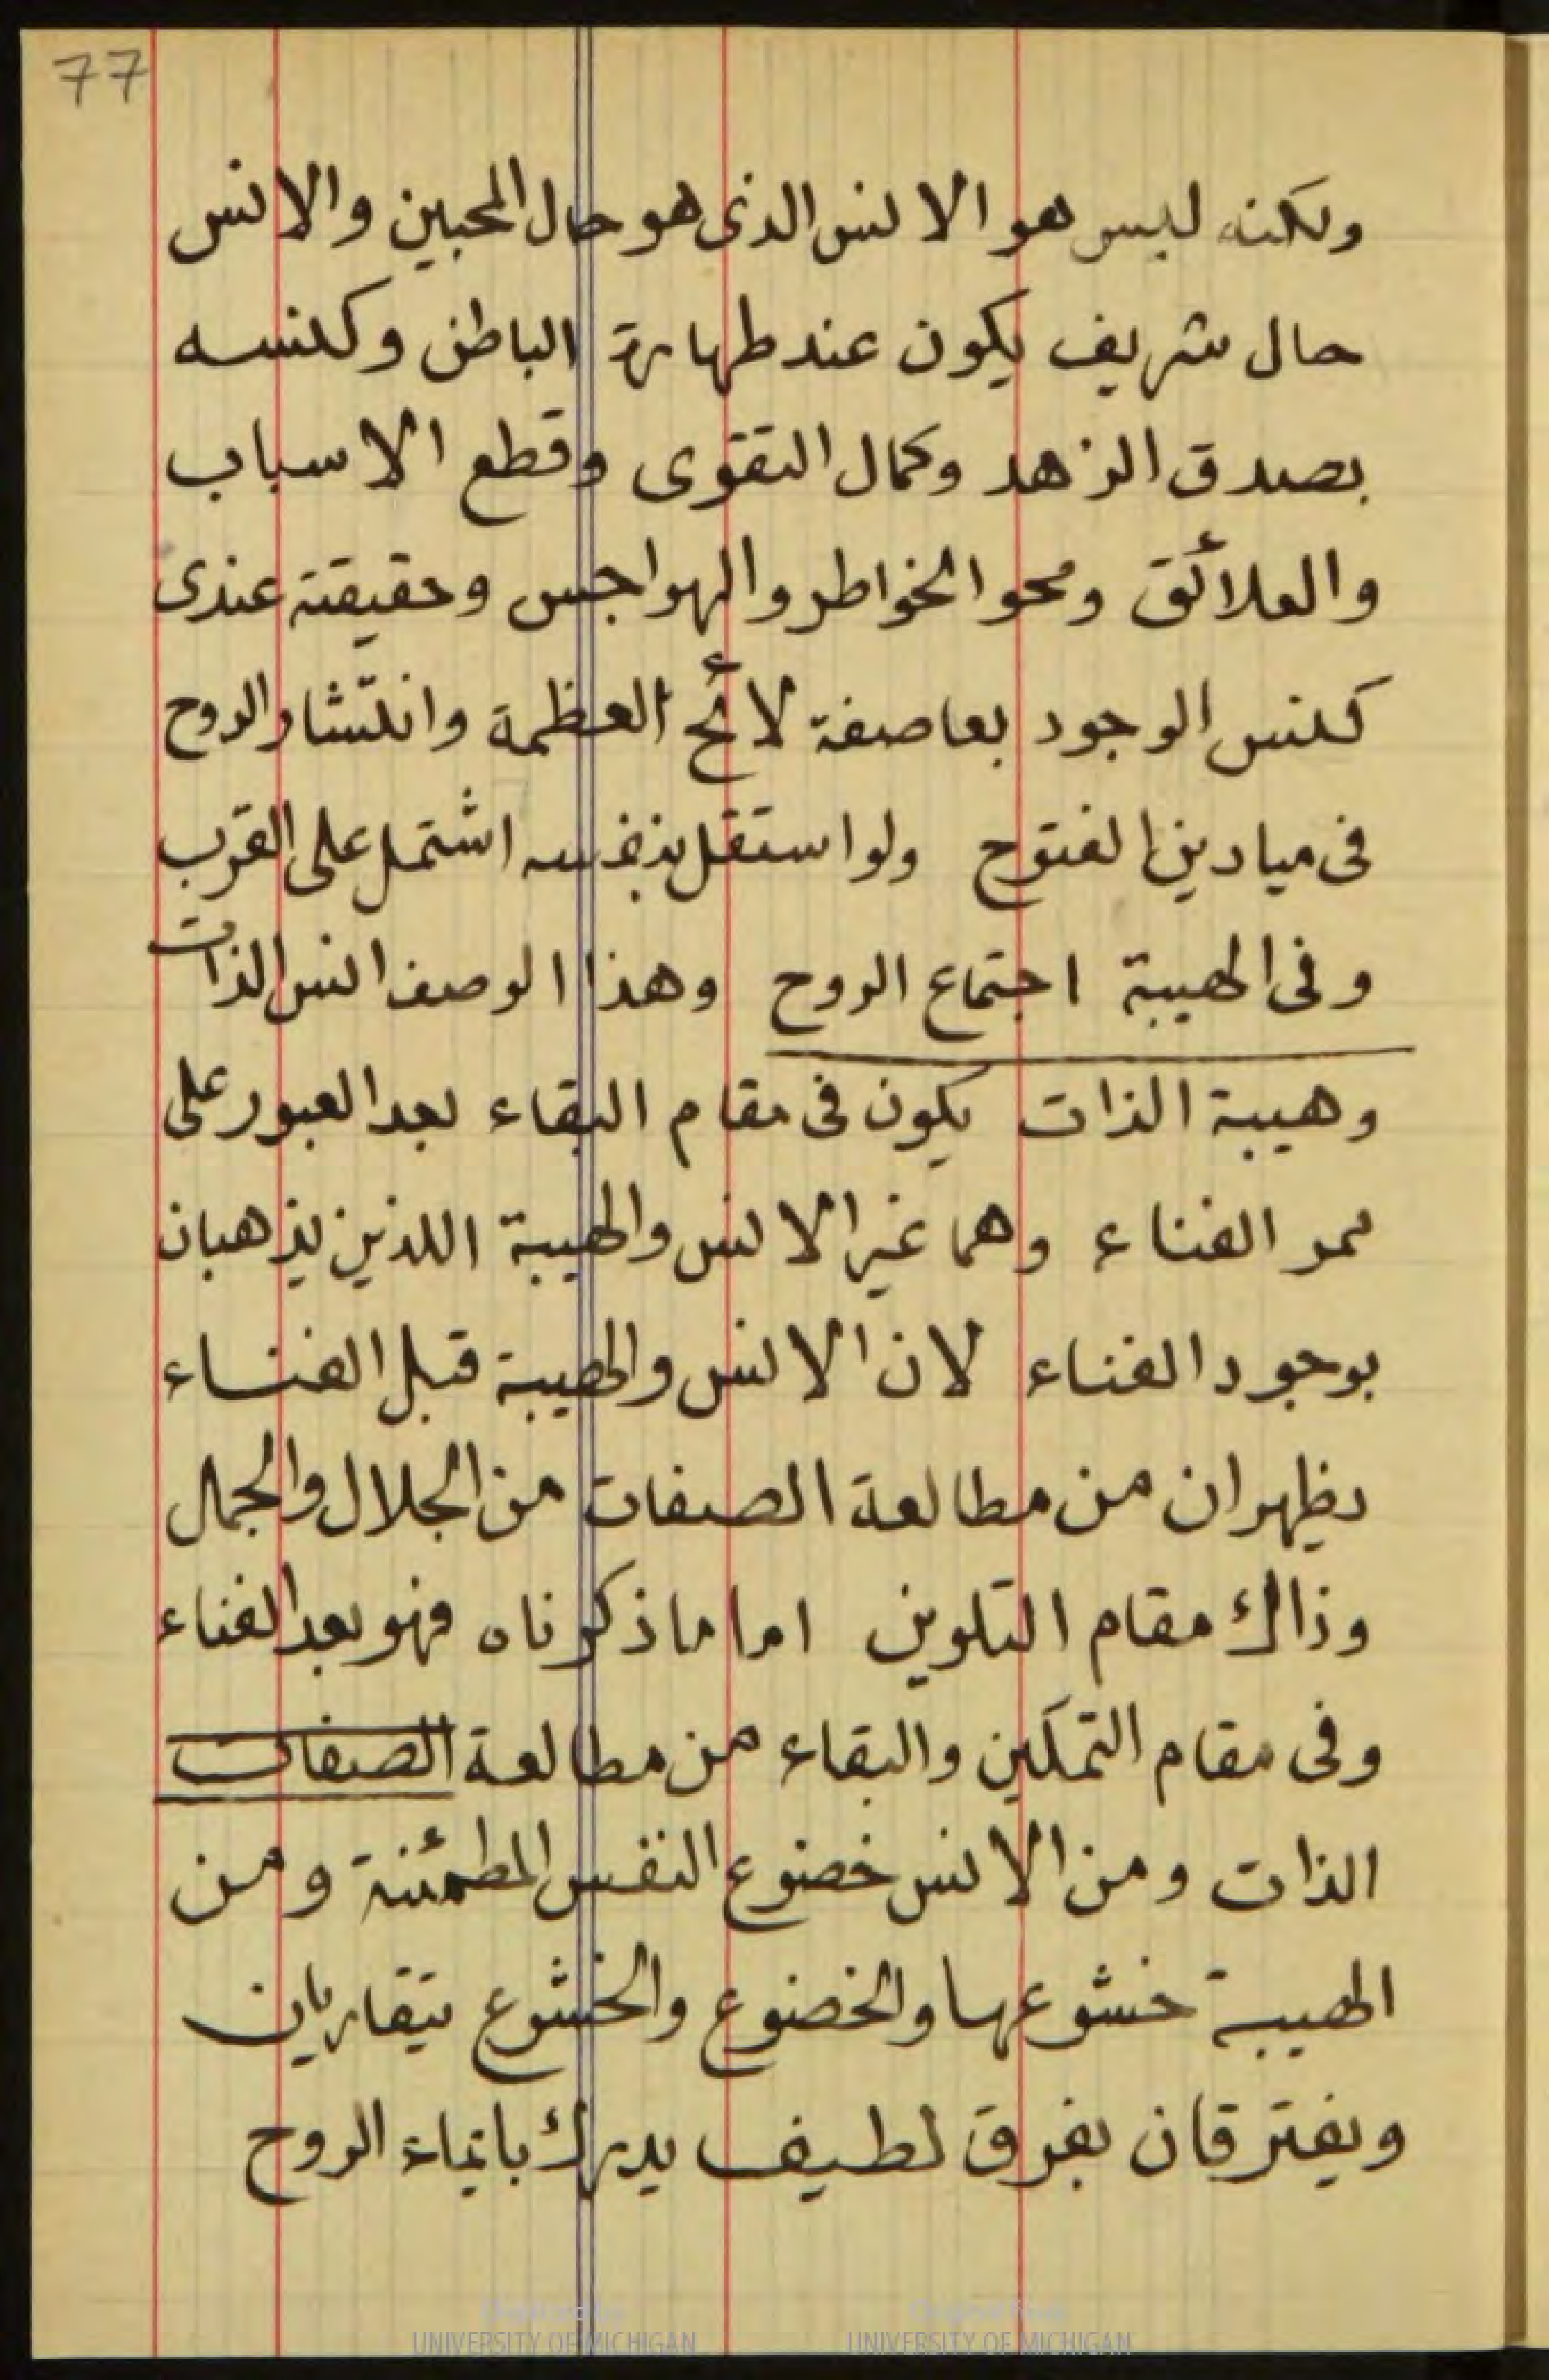 77
ولكنه ليس هو الانس الذى هو حال المحبين والانس
حال شريف يكون عند طهارة الباطن وكنسه
بصدق الزهد وكمال التقوى وقطع الاسباب
والعلائق ومحو الخواطر والهواجس وحقيقته عندى
كنس الوجود بعاصفة لائح العظمة وانتشار الروح
فى ميادين الفتوح ولو استقل بنفسه اشتمل على القرب
وفى الهيبة اجتماع الروح وهذا الوصف انس الذات
وهيبة الذات يكون فى مقام البقاء بعد العبور على
ممر الفناء وهما غير الانس والهيبة اللذين يذهبان
بوجود الفناء لان الانس والهيبة قبل الفناء
يظهران من مطالعة الصفات من الجلال والجمال
وذاك مقام التلوين اما ما ذكرناه فهو بعد الفناء
وفى مقام التمكين والبقاء من مطالعة الصفات
الذات ومن الانس خضوع النفس المطمئنة ومن
الهيبة خشوعها والخضوع والخشوع يتقاربان
ويفترقان بفرق لطيف يدرك بايماء الروح
UNIVERSITY OF MICHIGAN UNIVERSITY OF MICHIGAN